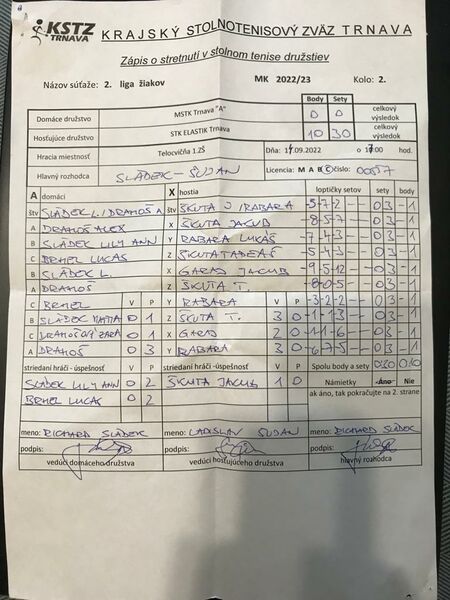 KSTZ TRNAVA KRAJSKÝ STOLNOTENISOVÝ ZVÄZ TRNAVA
Zápis o stretnutí v stolnom tenise družstiev
Názov súťaže: 2. liga žiakov MK 2022/23 Kolo: 2.
Domáce družstvo MSTK Trnava "A" Body Sety celkový výsledok
0 0
Hosťujúce družstvo STK ELASTIK Trnava 10 30 celkový výsledok
Hracia miestnosť Telocvičňa 1.ZŠ Dňa: 17.09.2022 o hod.
Hlavný rozhodca SLÁDEK - ŠUJAN Licencia: M A B C číslo:
A domáci X hostia loptičky setov sety body
štv SLÁDEK L. DRAHOŠ A štv ŠKUTA J RABARA -5-7-2 03-1
A DRAHOŠ ALEX X ŠKUTA JAKUB -8-5-7 03-1
B SLÁDEK LILY ANN Y RABARA LUKÁŠ -7-4-3 03-1
C BRHEL LUCAS Z ŠKUTA TADEÁŠ -5-4-3 03-1
B SLÁDEK L. X GARAJ JAKUB 03-1
A DRAHOŠ Z ŠKUTA T. -8-0-5 03-1
C BRHEL V P Y RABARA V P -3-2-2 03-1
B SLÁDEK 0 1 Z ŠKUTA T. 3 0 -1-1-3 03-1
C 0 1 X GARAJ 2 0 -1-1-6 03-1
A DRAHOŠ 0 3 Y RABARA 3 0 -6-7-5 03-1
striedaní hráči - úspešnosť V P striedaní hráči - úspešnosť V P Spolu body a sety 0:30 0:10
SLÁDEK LILY ANN 0 2 ŠKUTA JAKUB 1 0 Námietky Áno Nie
BRHEL LUCAS 0 2 ak áno, tak pokračujte na 2. strane
meno: RICHARD SLÁDEK meno: LADISLAV ŠUJAN meno: RICHARD SLÁDEK
podpis: podpis: podpis:
vedúci domáceho družstva vedúci hosťujúceho družstva hlavný rozhodca